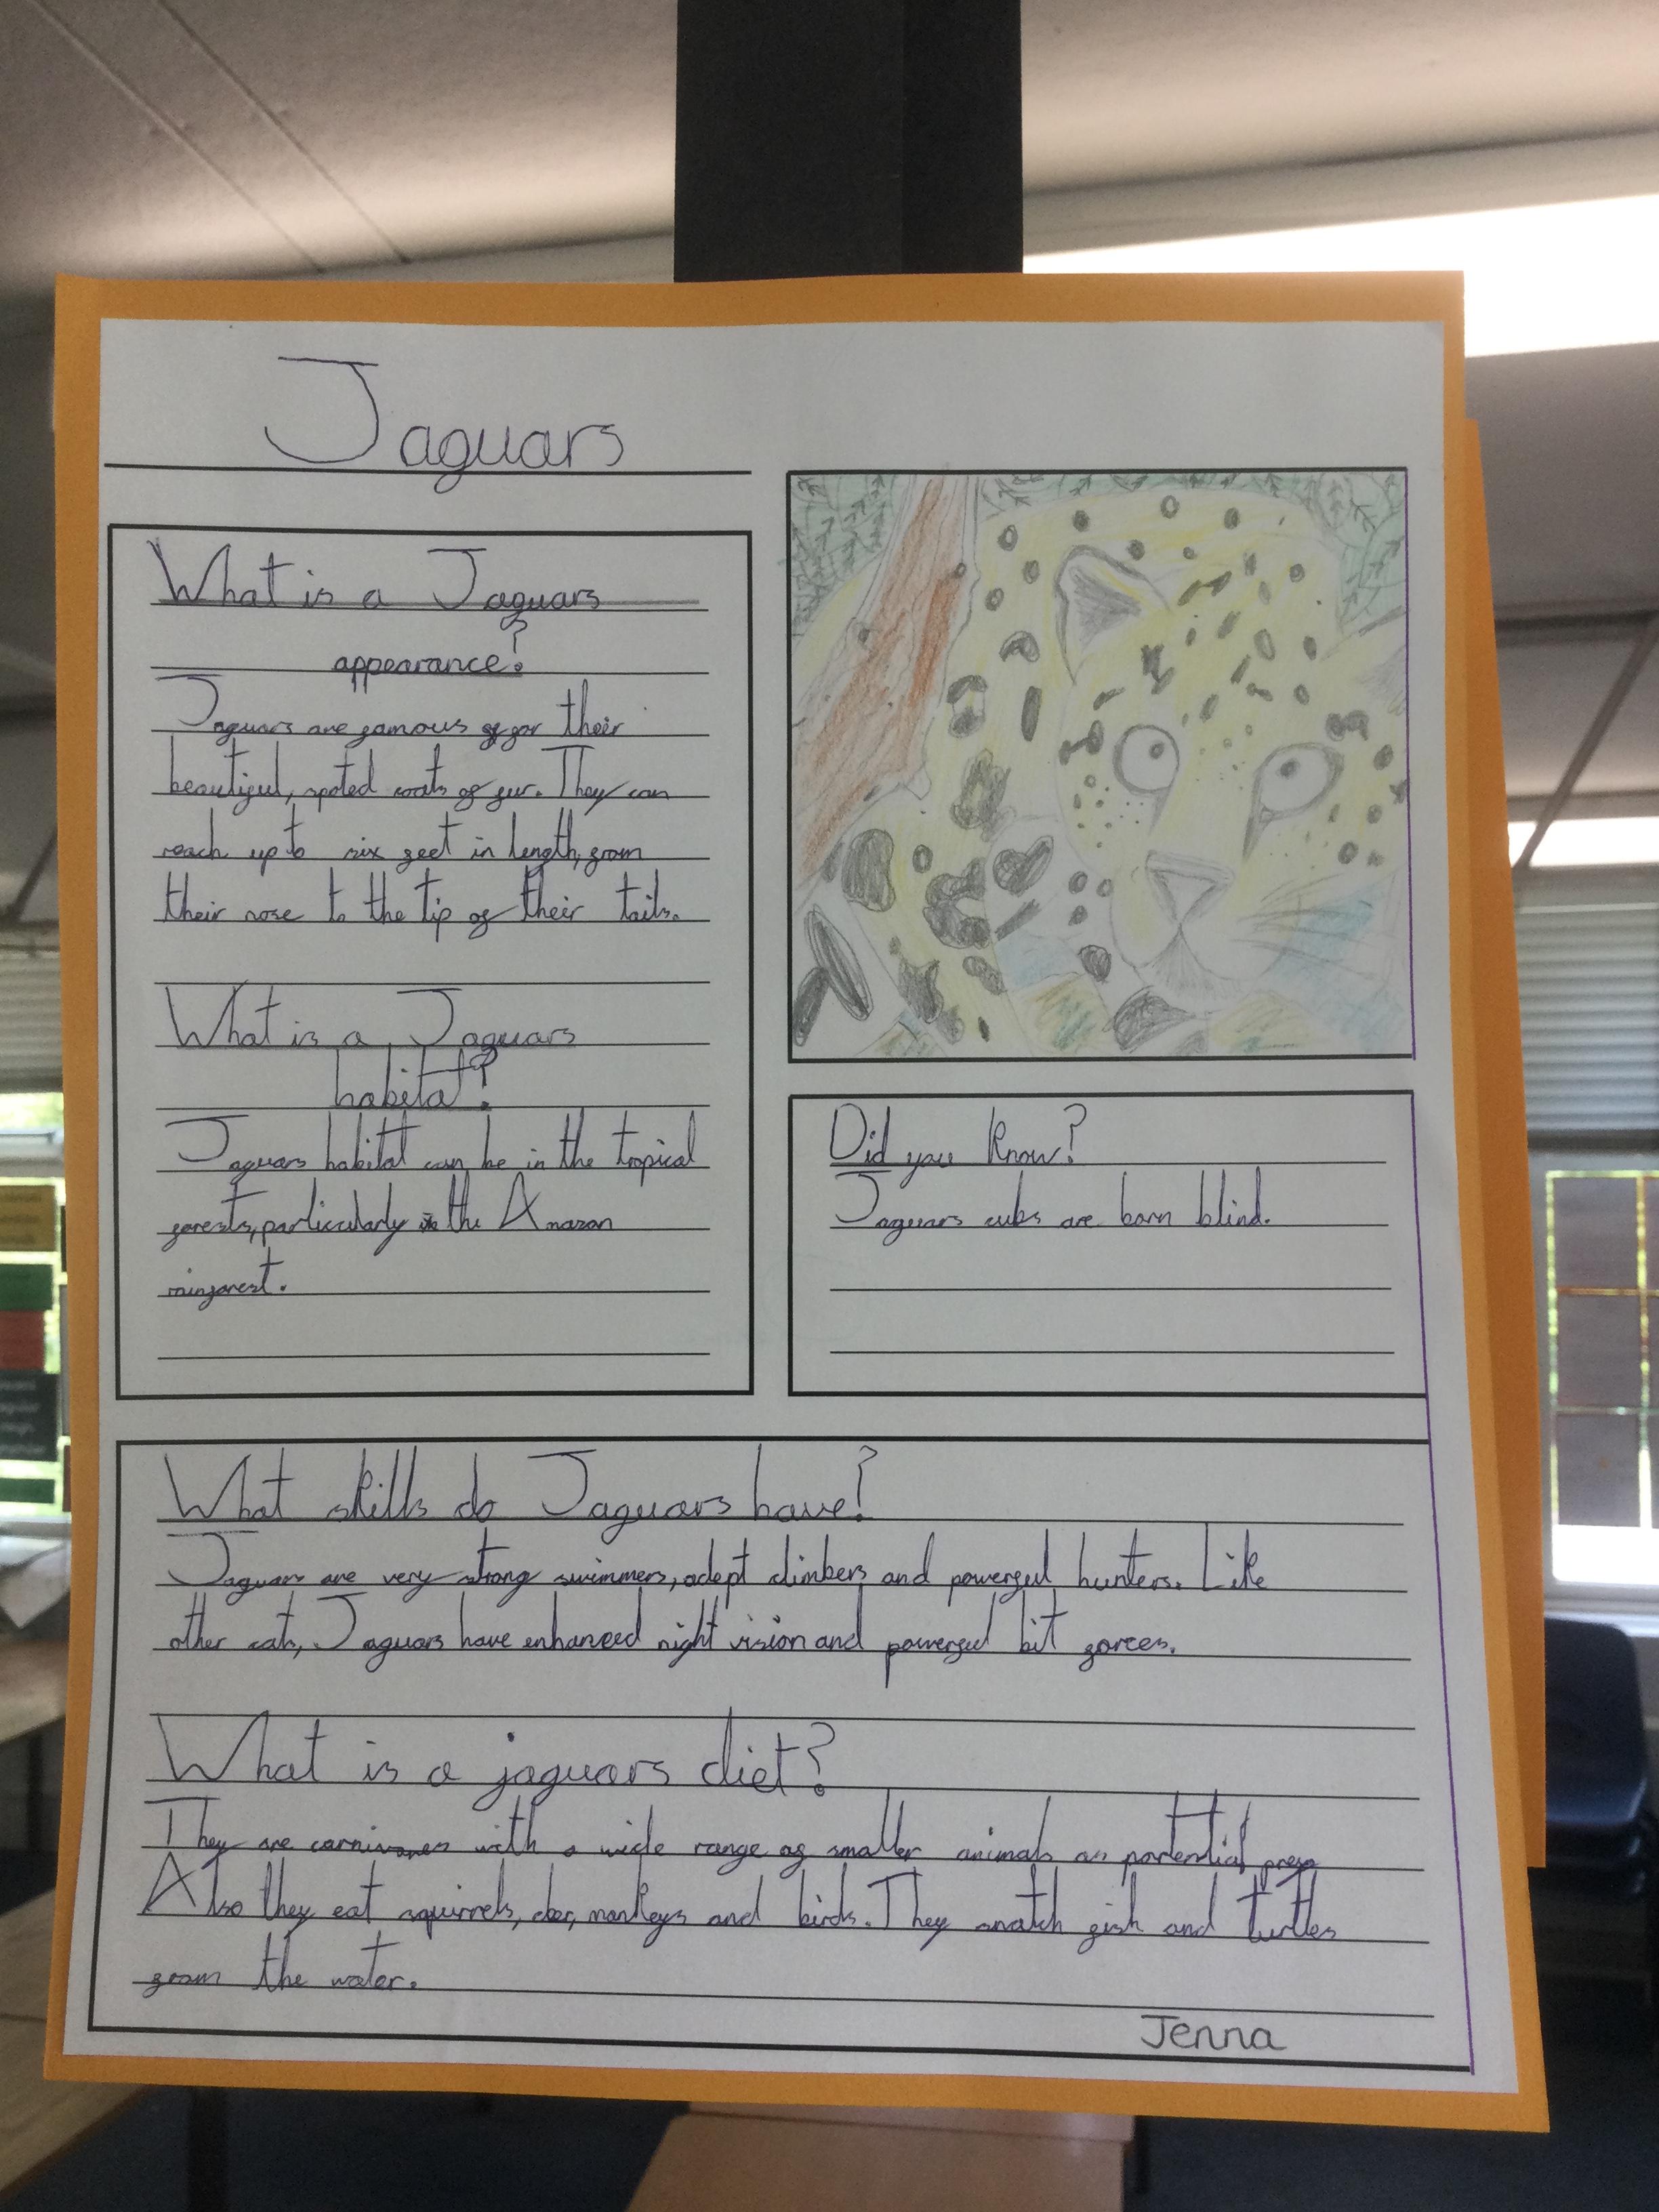 Jaguars
What is a Jaguars
appearance?
Jaguars are famous for their
beautiful, spoted coats of fur. They can
reach up to six feet in length, from
their nose to the tip of their tails.
What is a Jaguars
habitat?
Jaguars habitat can be in the tropical
forests, particularly in the Amazon
rainforest.
Did you know?
Jaguars cubs are born blind.
What skills do Jaguars have?
Jaguars are very strong swimmers, adept climbers and powerful hunters. Like
other cats, Jaguars have enhanced night vision and powerful bit forces.
What is a jaguars diet?
They are carnivores with a wide range of smaller animals as potential prey
Also they eat squirrels, deer, monkeys and birds. They snatch fish and turtles
from the water.
Jenna